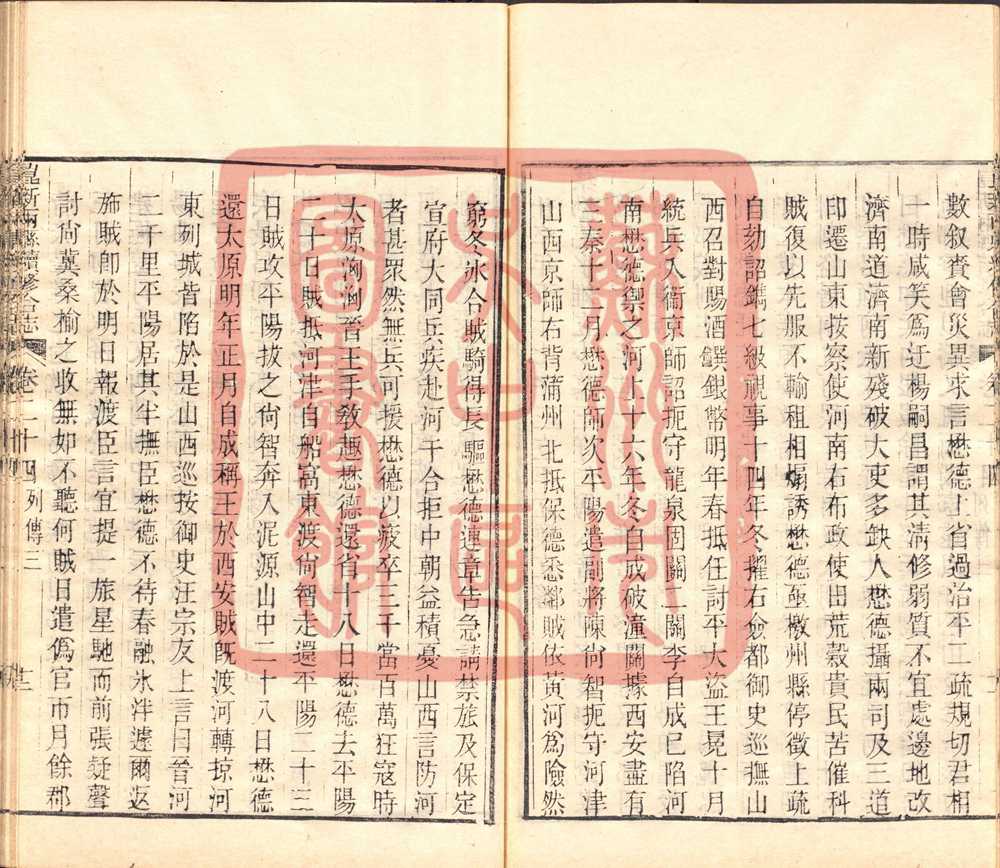 數叙賚會災異求言懋德上省過治平二疏規切君相
一時咸笑爲迂楊嗣昌謂其清修弱質不宜處邊地改
濟南道濟南新殘破大吏多缺人懋德攝兩司及三道
印遷山東按察使河南右布政使田荒穀貴民苦催科
賊復以先服不輸租相煽誘懋德亟檄州縣停徵上疏
自劾詔鐫七級視事十四年冬擢右僉都御史巡撫山
西召對賜酒饌銀幣明年春抵任討平大盜王冕十月
統兵入衞京師詔扼守龍泉固關二關李自成已陷河
南懋德禦之河上十六年冬自成破潼關據西安盡有
三秦十二月懋德師次平陽遣副將陳尙智扼守河津
山西京師右背蒲州北抵保德悉鄰賊依黃河爲險然
窮冬冰合賊騎得長驅懋德連章告急請禁旅及保定
宣府大同兵疾赴河干合拒中朝益積憂山西言防河
者甚眾然無兵可援懋德以疲卒三千當百萬狂寇時
太原洶洶晉王手敎趣懋德還省十八日懋德去平陽
二十日賊抵河津自船窩東渡尙智走還平陽二十三
日賊攻平陽拔之尙智奔入泥源山中二十八日懋德
還太原明年正月自成稱王於西安賊旣渡河轉掠河
東列城皆陷於是山西巡按御史汪宗友上言曰晉河
二千里平陽居其半撫臣懋德不待春融冰泮遽爾返
旆賊卽於明日報渡臣言宜提一旅星馳而前張疑聲
討尙冀桑榆之收無如不聽何賊日遣僞官市月餘郡
崑新兩縣續修合志 卷二十四 列傳三
蘇州市
吳中區
圖書館